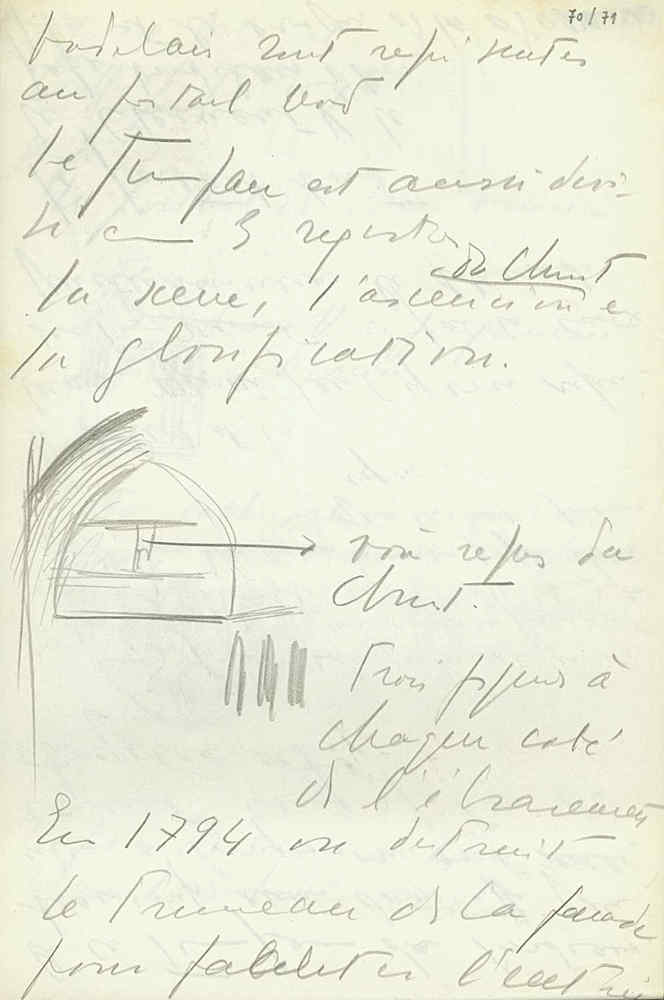 70/71
bordelais sont représentés
au portail nord
Le Tympan est aussi divi-
sé en 3 registres
du Christ
la scene, l'ascencion e
la glorification.
voir repas du
Christ.
Trois figures à
chaque coté
de l'ébrasement
En 1794 on detruit
le Trumeau de la facade
pour faciliter l'entrée